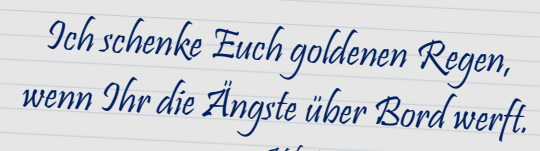 Ich schenke Euch goldenen Regen,
wenn Ihr die Ängste über Bord werft.